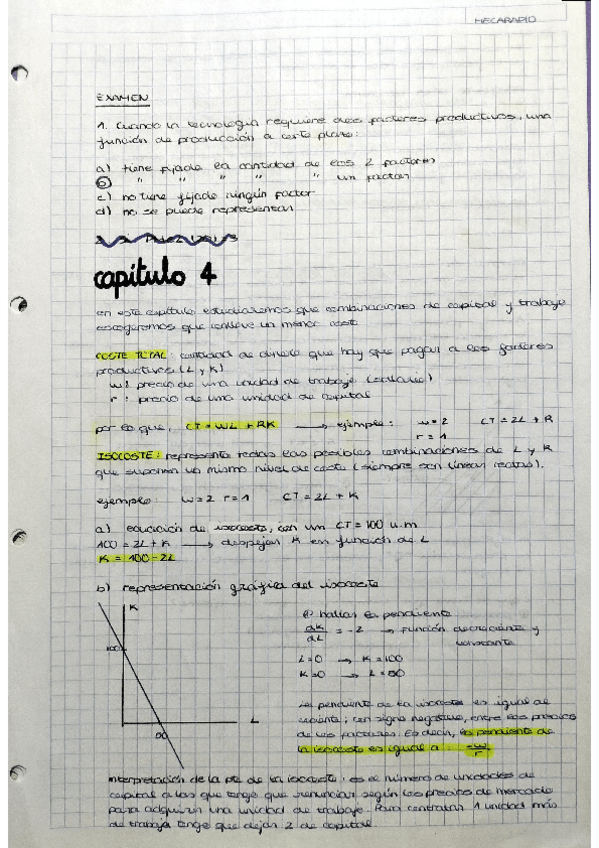 MECARAPIO
EXAMEN
1. Cuando la tecnología requiere dos factores productivos, una
función de producción a corto plazo:
a) tiene fijada la cantidad de los 2 factores
b) " " " " " un factor
c) no tiene fijado ningún factor
d) no se puede representar
capítulo 4
en este capítulo estudiaremos que combinaciones de capital y trabajo
escogeremos que conlleve un menor coste
COSTE TOTAL: cantidad de dinero que hay que pagar a los factores
productivos (L y K)
w: precio de una unidad de trabajo (salario)
r: precio de una unidad de capital
por lo que, CT = WL + RK → ejemplo: w=2 CT = 2L + R
r = 1
ISOCOSTE: representa todas las posibles combinaciones de L y K
que suponen un mismo nivel de coste (siempre son líneas rectas).
ejemplo: w=2 r=1 CT = 2L + K
a) ecuación de isocoste, con un CT = 100 u.m
100 = 2L + K → despejar K en función de L
K = 100 - 2L
b) representación gráfica del isocoste
K
100
50
L
hallar la pendiente
dK/dL = -2 → función decreciente y
constante
L=0 → K=100
K=0 → L=50
La pendiente de la isocoste es igual al
cociente, con signo negativo, entre los precios
de los factores. Es decir, la pendiente de
la isocoste es igual a -w/r
Interpretación de la pte de la isocoste: es el número de unidades de
capital a las que tengo que renunciar según los precios de mercado
para adquirir una unidad de trabajo. Para contratar 1 unidad más
de trabajo tengo que dejar 2 de capital